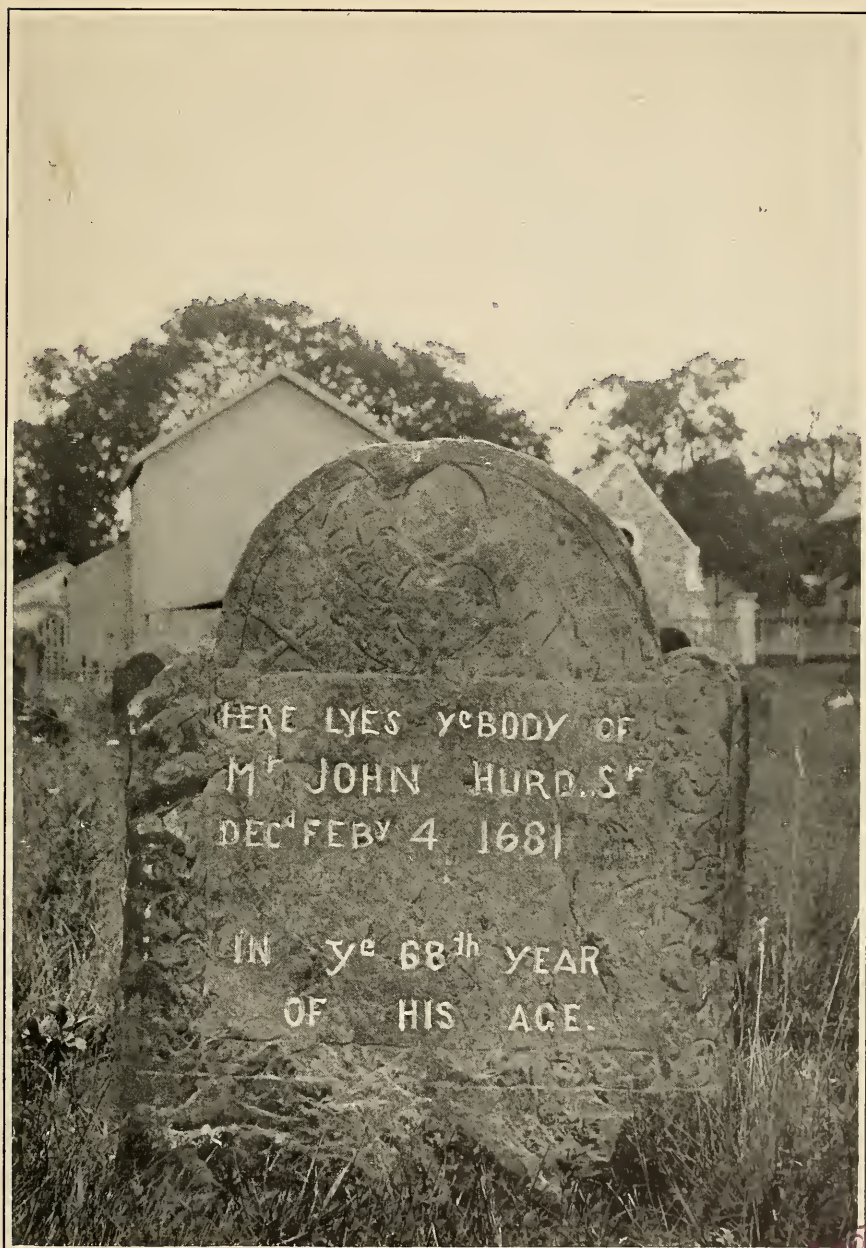 HERE LYES Yᵉ BODY OF
Mʳ JOHN HURD.. Sʳ
DECᵈ FEBʸ 4 1681
IN Yᵉ 68ᵗʰ YEAR
OF HIS AGE.